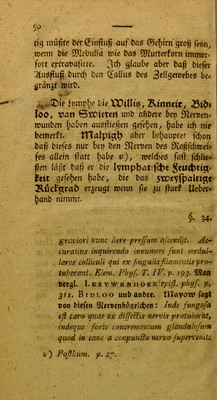 50
tig müßte der Einfluß auf das Gehirn groß seyn,
wenn die Medulla wie das Mutterkorn immer-
fort extravasirte. Ich glaube aber daß dieser
Ausfluß durch den Callus des Zellgewebes be-
gränzt wird.
Die Lymphe die Willis, Kinneir, Bid-
loo, van Swieten und andere bey Nerven-
wunden haben ausfließen gesehen, habe ich nie
bemerkt. Malpigh aber behauptet schon
daß dieses nur bey den Nerven des Roßschwei-
fes allein statt habe v), welches fast schlie-
ßen läßt daß er die lymphatische Feuchtig-
keit gesehen habe, die das zweyspaltige
Rückgrad erzeugt wenn sie zu stark Ueber-
hand nimmt.
§. 34.
graviori nunc aere pressum ascendit. Ac-
curatius inquirendo innumeri sunt medul-
lares colliculi qui ex singulis filamentis pro-
tuberant. Elem. Phys. T. IV. p. 193. Man
vergl. LEEVWENHOEK epist. phys. p.
311. BIDLOO und andre. Mayow sagt
von diesen Nervenhügelchen: Inde fungosa
est caro quae ex dissectis nervis protuberat,
indeque forte concrementum glandulosum
quod in cane a conpuncto nervo supervenit.
v) Posthum. p. 27.